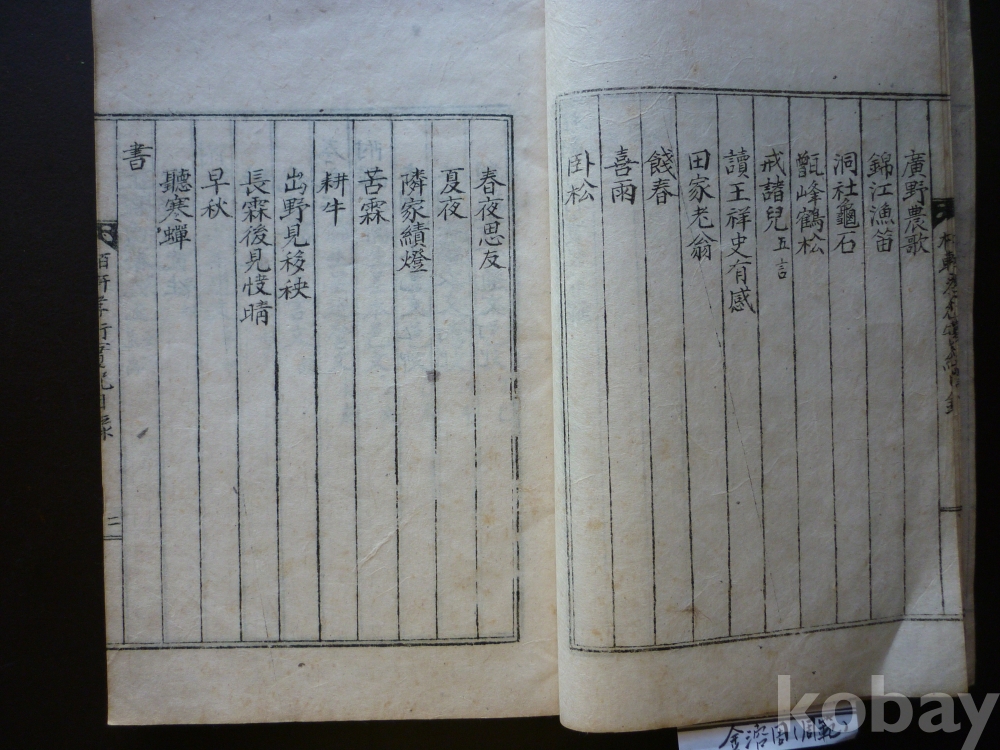 廣野農歌
錦江漁笛
洞社龜石
甑峰鶴松
戒諸兒 五言
讀王祥史有感
田家老翁
餞春
喜雨
卧松
春夜思友
夏夜
隣家績燈
苦霖
耕牛
出野見移秧
長霖後見快晴
早秋
聽寒蟬
書
孝行實記目錄
二
kobay